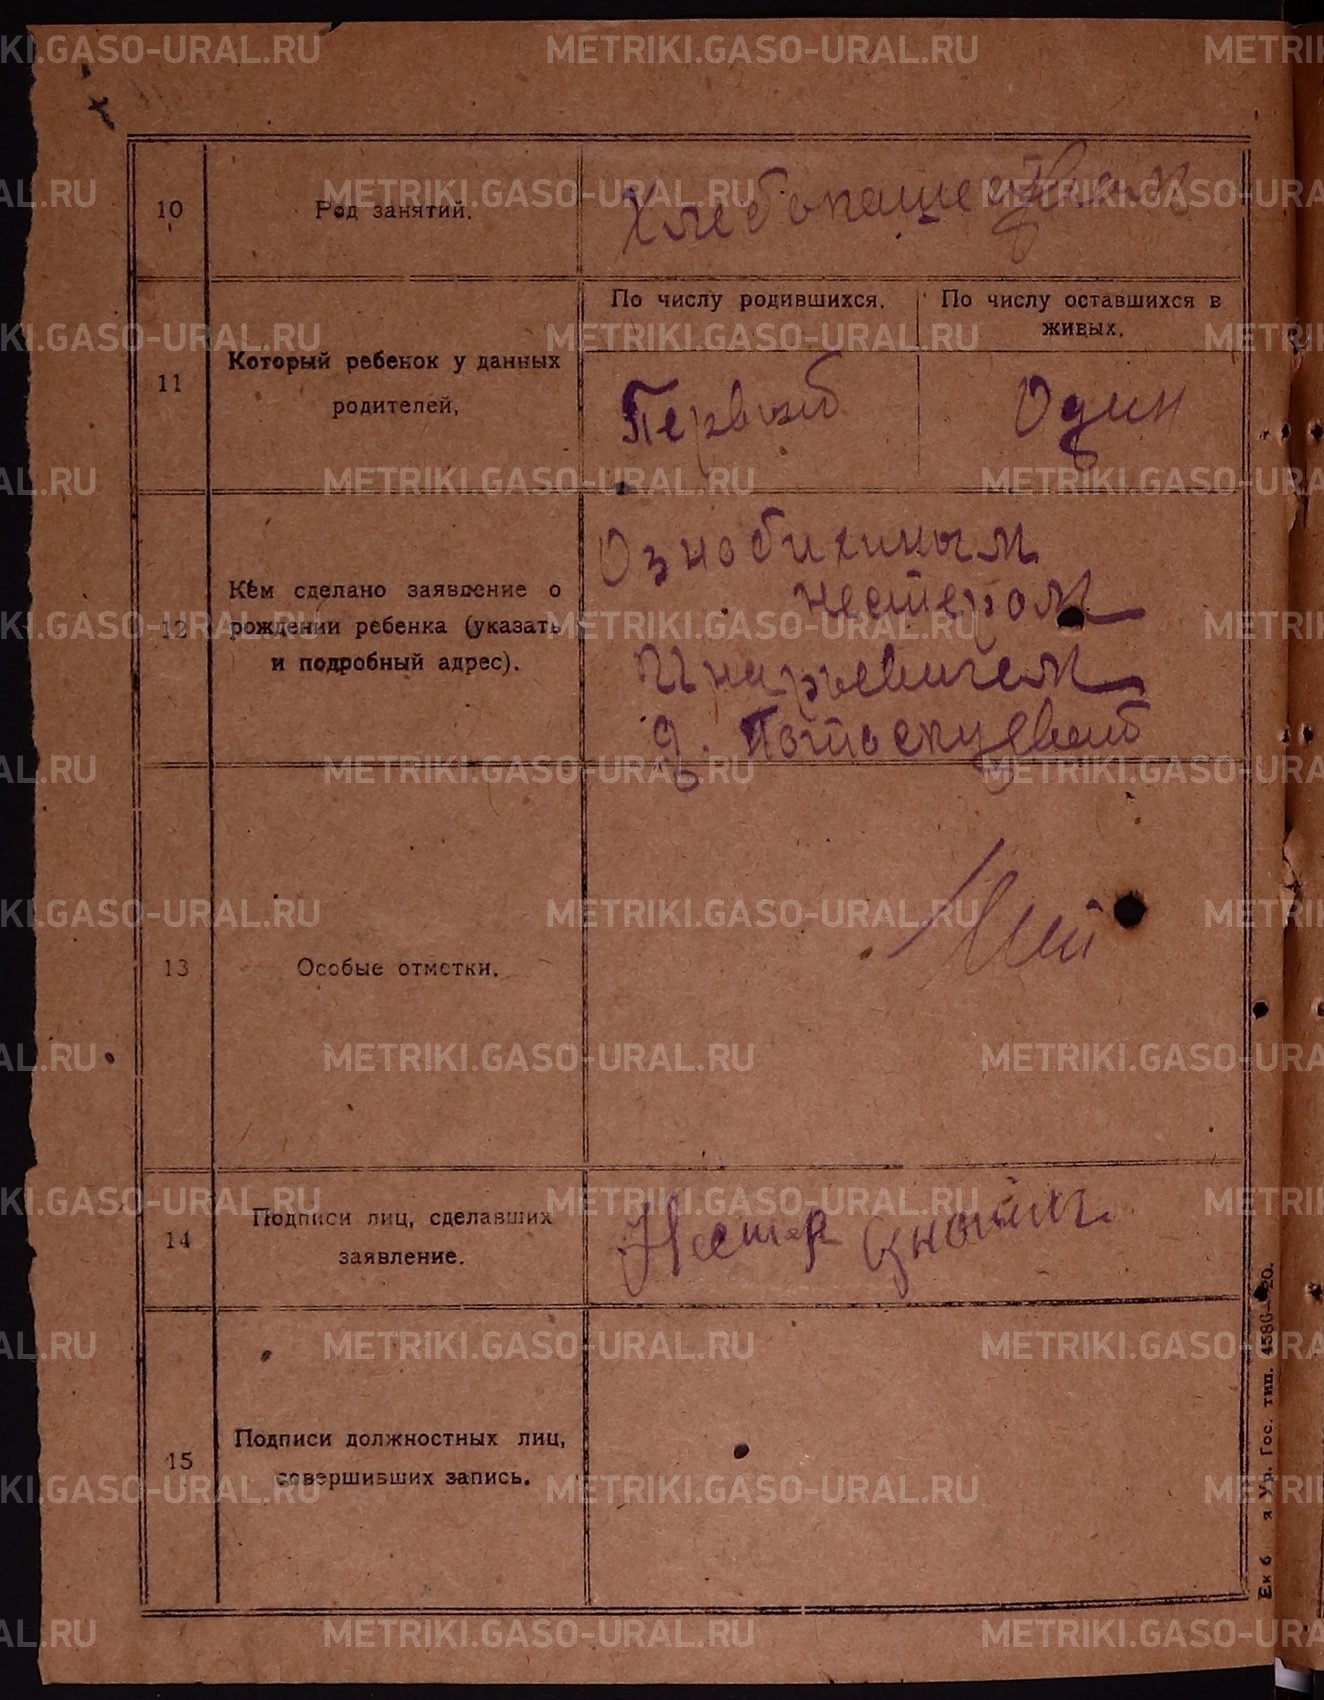 10
Род занятий.
Хлебопашеством
11
Который ребенок у данных
родителей,
По числу родившихся.
По числу оставшихся в
живых.
Первый
Один
12
Кем сделано заявление о
рождении ребенка (указать
и подробный адрес).
Ознобихиным
Нестером
д. Потоскуевой
13
Особые отметки.
14
Подписи лиц, сделавших
заявление.
Нестер
15
Подписи должностных лиц,
совершивших запись.
я Ур. Гос. тип. 4586—20.
METRIKI.GASO-URAL.RU